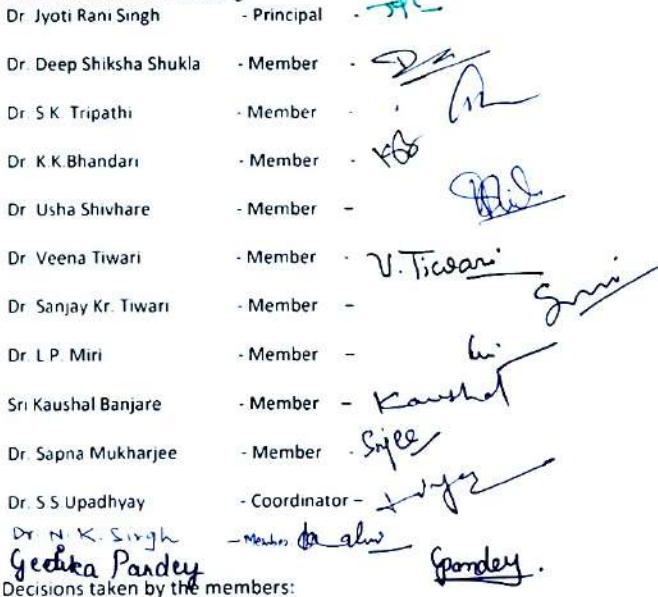 Dr. Jyoti Rani Singh - Principal -
Dr. Deep Shiksha Shukla - Member -
Dr S.K. Tripathi - Member -
Dr K.K.Bhandari - Member -
Dr Usha Shivhare - Member –
Dr Veena Tiwari - Member - V. Tiwari
Dr Sanjay Kr. Tiwari - Member –
Dr. L P. Miri - Member –
Sri Kaushal Banjare - Member – Kaushal
Dr. Sapna Mukharjee - Member -
Dr. S S Upadhyay - Coordinator –
Dr. N. K. Singh - Member
Geetika Pandey Gpandey.
Decisions taken by the members: